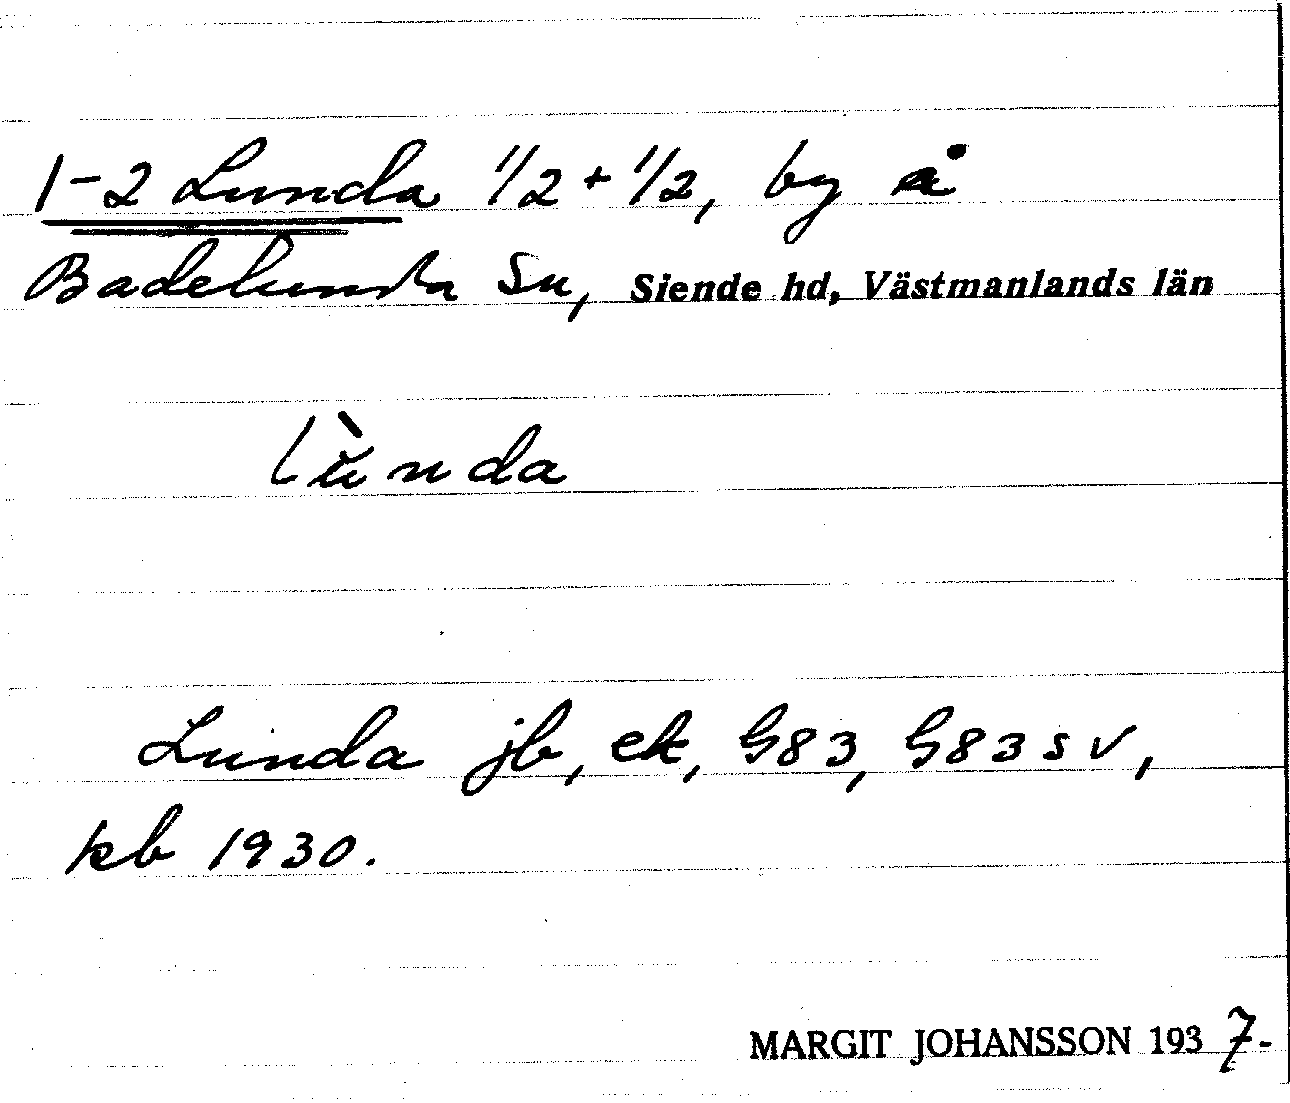 1-2 Lunda 1/2 + 1/2, by å
Badelunda Sn, Siende hd, Västmanlands län
lùnda
Lunda jb, ek, G83, G83sv,
kb 1930.
MARGIT JOHANSSON 1937-